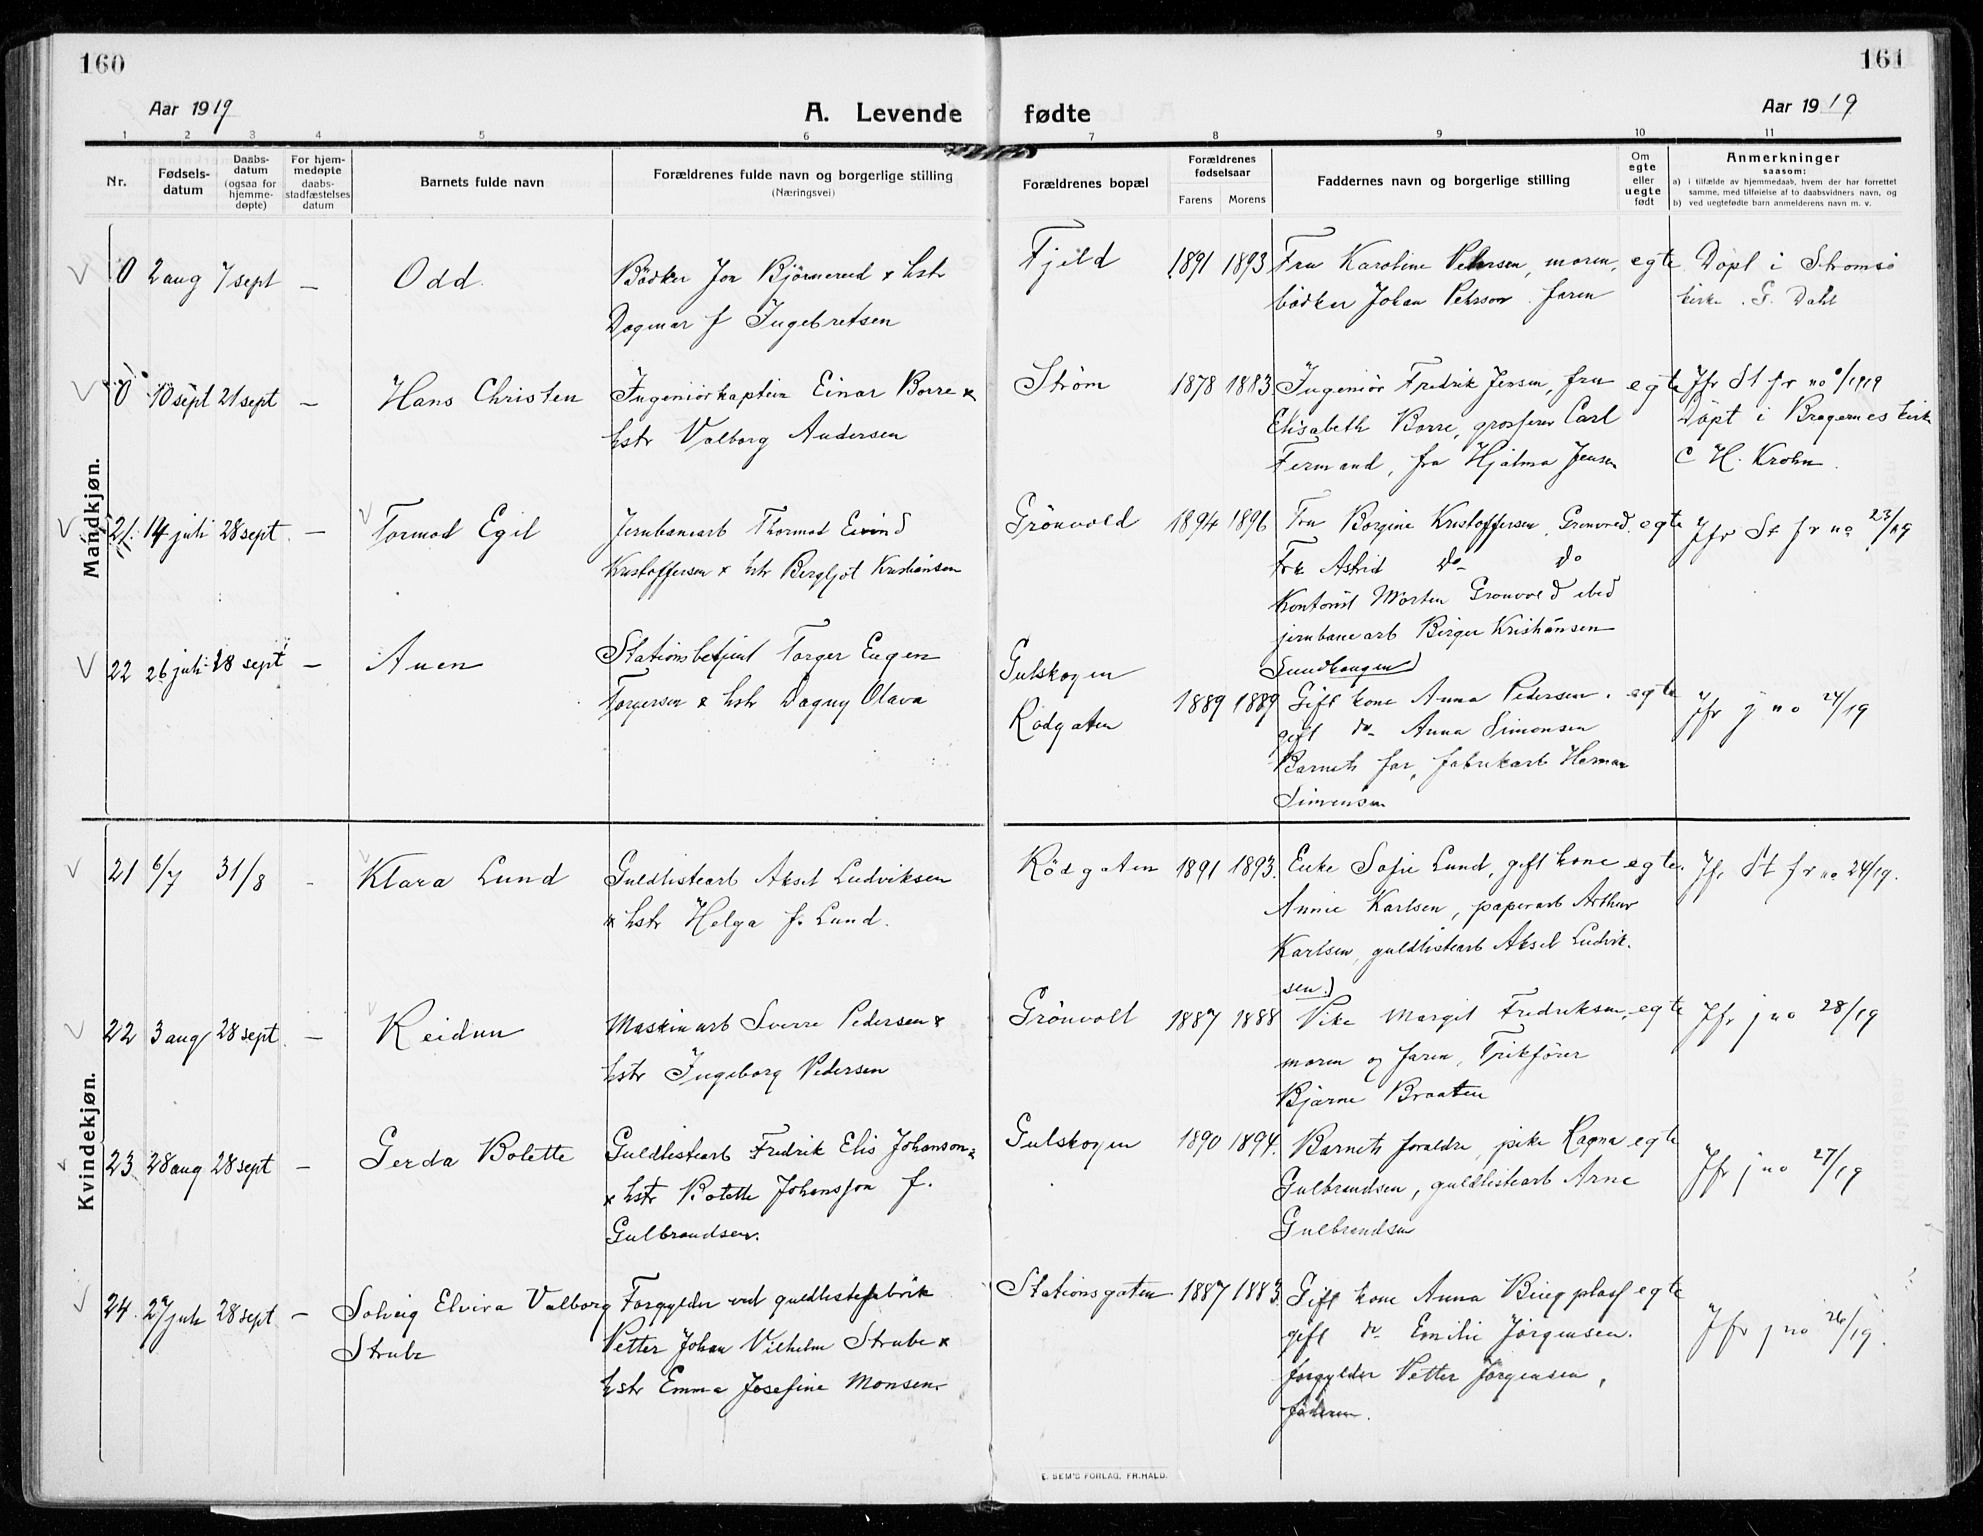 160
161
Aar 1919
A. Levende fødte
Aar 1919
1 2 3 4 5 6 7 8 9 10 11
Nr.
Fødsels-
datum
Daabs-
datum
(ogsaa for
hjemme-
døpte)
For hjem-
medøpte
daabs-
stadfæstelses
datum
Barnets fulde navn
Forældrenes fulde navn og borgerlige stilling
(Næringsvei)
Forældrenes bopæl
Forældrenes
fødselsaar
Farens Morens
Faddernes navn og borgerlige stilling
Om
egte
eller
uegte
født
Anmerkninger
saasom:
a) i tilfælde av hjemmedaab, hvem der har forrettet
samme, med tilføielse af to daabsvidners navn, og
b) ved uegtefødte barn anmelderens navn m. v.
Mandkjøn.
0 2 aug 7 sept – Odd.
Bødker Jon Bjørnerud & hstr
Dagmar f Ingebretsen
Fjeld
1891 1893
Fru Karoline Petersen, moren,
bødker Johan Petersson. faren
egte
Døpt i Strømsø
kirke. G. Dahl
0 10 sept 21 sept – Hans Christen
Ingeniørkaptein Einar Borre &
hstr Valborg Andersen
Strøm
1878 1883
Ingeniør Fredrik Jensen, fru
Elisabeth Borre, grosserer Carl
Fermand, fru Hjalma Jensen
egte
Jfr St fr no 0/1919
Døpt i Bragernes kirk
C H. Krohn.
21. 14 juli 28 sept. – Tormod Egil
Jernbanearb Thormod Eivind
Kristoffersen & hstr Bergljot Kristiansen
Grönvold
1894 1896
Fru Borgine Kristoffersen, Gronvold.
Frk Astrid Do Do
Kontorist Morten Gronvold ibid
jernbanearb Birger Kristiansen
Sundhaugen)
egte
Jfr St fr no 23/19
22 26 juli 28 sept –
Stationsbetjent Torger Eugen
Torgersen & hstr Dagny Olava
Gulskogen
Rødgaten
1889 1889
Gift kone Anna Pedersen.
gift do Anna Simonsen
Barnets far, fabrikarb Herman
Simensen
egte
Jfr j no 21/19
Kvindekjøn.
21 6/7 31/8 - Klara Lund
Guldlistearb Aksel Ludviksen
& hstr Helga f. Lund.
Rødgaten
1891 1893.
Enke Sofie Lund, gift kone
Annie Karlsen, papirarb Arthur
Karlsen, guldlistearb Aksel Ludvik-
sen.)
egte.
Jfr St fr no 24/19.
22 3 aug 28 sept. – Reidun
Maskinarb Sverre Pedersen &
hstr Ingeborg Pedersen
Grönvolt
1887 1888
Pike Margit Fredriksen,
moren og faren,
Bjarne Braaten
egte
Jfr j no 28/19
23 28 aug 28 sept – Gerda Bolette
Guldlistearb Fredrik Elis Johanson
& hstr Bolette Johansson f.
Gulbrandsen.
Gulskogen
1890 1894.
Barnets foraldre, pike Ragna
Gulbrandsen, guldlistearb Arne
Gulbrandsen
egte
Jfr j no 27/19
24. 27 juli 28 sept – Solveig Elvira Valborg
Strube
Forgylder ved guldlistefabrik
Petter Johan Vilhelm Strube &
hstr Emma Josefine Monsen.
Stationsgaten
1887 1883.
Gift kone Anna
gift do Emilie Jørgensen.
forgylder Petter Jørgensen,
faderen.
egte
Jfr j no 26/19.
E. SEM'S FORLAG, FR.HALD.